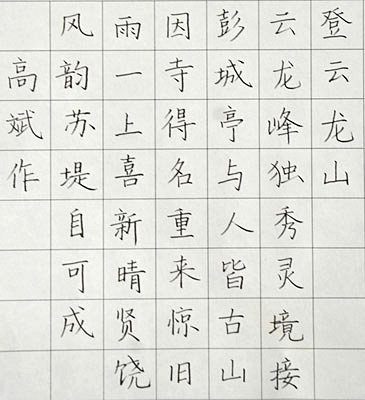 登云龙山
云龙峰独秀灵境接
彭城亭与人皆古山
因寺得名重来惊旧
雨一上喜新晴贤饶
风韵苏堤自可成
高斌作